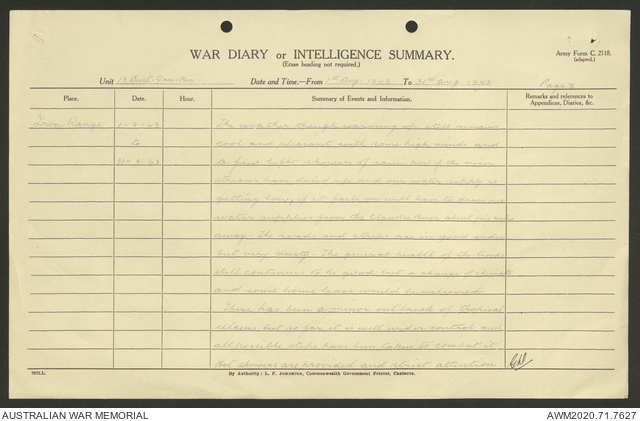 WAR DIARY or INTELLIGENCE SUMMARY.
(Erase heading not required.)
Army Form C. 2118.
(adapted.)
Unit 13 Aust
Date and Time.—From 1st Aug. 1943 To 31st Aug. 1943
Page
Place. Date. Hour. Summary of Events and Information. Remarks and references to Appendices, Diaries, &c.
Iron Range 1-8-43 The weather though warming up still remains
to cool and pleasant with some high winds and
31-8-43 a few light showers of rain. Most of the minor
streams have dried up and our water supply is
getting low, if it fails we will have to draw our
water supplies from the Claudie River about six miles
away. The roads and are in good order
but very dusty. The general health of the troops
still continues to be good but a change of climate
and some home leave would be welcomed
There has been a minor outbreak of tropical
ulcers but so far it is well under control and
all possible steps have been taken to combat it.
Hot showers are provided and strict attention
7873.L.
By Authority: L. F. Johnston, Commonwealth Government Printer, Canberra.
AUSTRALIAN WAR MEMORIAL
AWM2020.71.7627